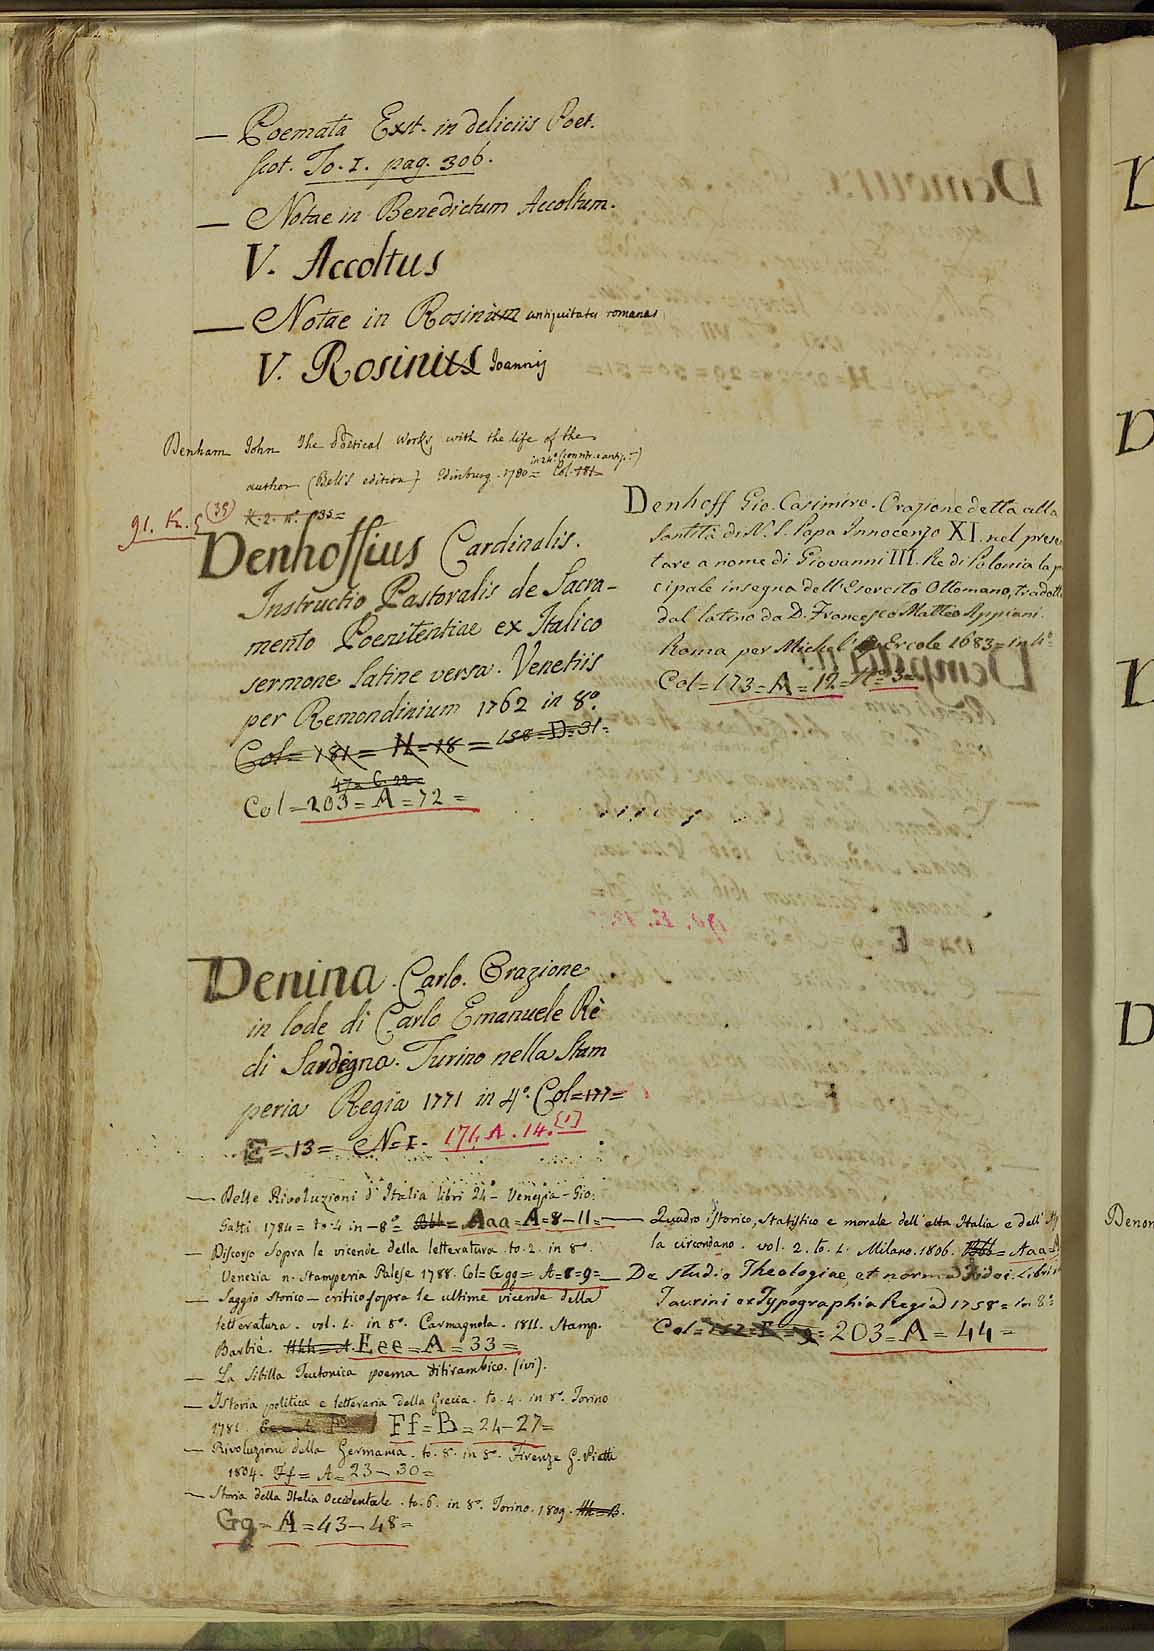 — Poemata Ext. in deliciis Poet.
Scot. To. I. pag. 306.
— Notae in Benedictum Accoltum.
V. Accoltus
— Notae in Rosinum antiquitates romanas
V. Rosinus Joannis
Denham John The Poetical Works with the life of the
author (Bell's edition) Edinburg. 1780 = in 24°
Col. 181
91. Kn. 5 (35) K. 2. n°. 35 =
Denhoffius Cardinalis.
Instructio Pastoralis de Sacra-
mento Poenitentiae ex Italico
sermone latine versa. Venetiis
per Remondinium 1762 in 8°.
Col = 181 = N = 18 = 158 = D = 31 =
47 = C. 22 =
Col = 203 = A = 72 =
Denhoff Gio. Casimiro. Orazione detta alla
Santità di N. S. Papa Innocenzo XI. nel prese
tare a nome di Giovanni III. Re di Polonia la
cipale insegna dell'Esercito Ottomano, tradott
dal latino da D. Francesco Matteo Appiani.
Roma per Michel' Ercole 1683 = in 4°
Col = 173 = A = 12 = N° 3 =
Denina. Carlo. Orazione
in lode di Carlo Emanuele Rè
di Sardegna. Turino nella Stam
peria Regia 1771 in 4°. Col = 177 =
E = 13 = N = I. 171. A. 14. [1]
— Delle Rivoluzioni d'Italia libri 24 — Venezia — Gio:
Gatti 1784 = to. 4 in — 8° = Bbb = Aaa = A = 8 — 11 =
— Discorso sopra le vicende della letteratura. to. 2. in 8°.
Venezia n. Stamperia Palese 1788. Col = Ggg = A = 8 = 9 =
— Saggio storico — critico sopra le ultime vicende della
letteratura. vol. 1. in 8°. Carmagnola. 1811. Stamp.
Barbiè. Hhh = A. Eee = A = 33 =
— La Sibilla Teutonica poema ditirambico. (ivi).
— Istoria politica e letteraria della Grecia. to. 4. in 8°. Torino
1781. Ff = B = 24 — 27 =
— Rivoluzioni della Germania. to. 8. in 8°. Firenze G. Piatti
1804. Ff = A = 23 — 30 =
— Storia della Italia Occidentale. to. 6. in 8°. Torino. 1809. Hh = B.
Gg = A = 43 — 48 =
— Quadro Istorico, Statistico e morale dell'alta Italia e dell'
la circondano. vol. 2. to. 1. Milano. 1806. Bbb = Aaa =
— De studio Theologiae, et norma Fidei. Libri
Taurini ex Typographia Regia 1758 = in 8°=
Col = 203 = A = 44 =